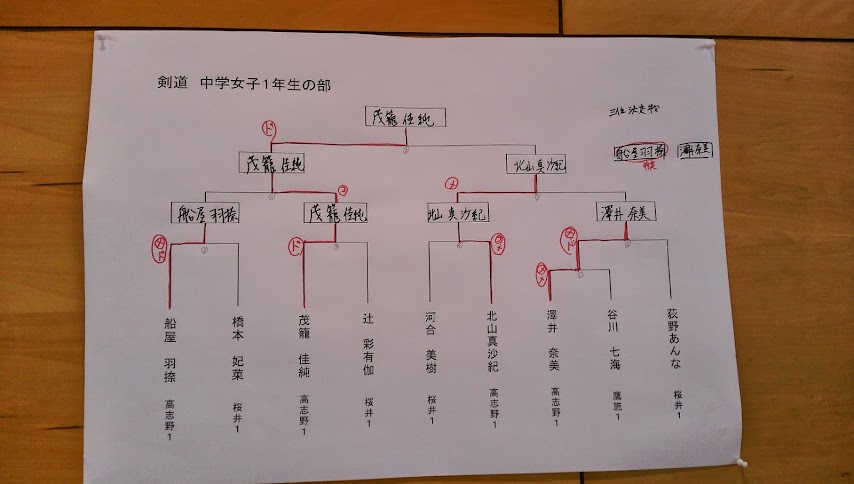 剣道　中学女子1年生の部
三位決定戦
茂籠 佳純
ド
茂籠 佳純
北山 真沙紀
船屋 羽捺
澤井 奈美
コ
メ
船屋 羽捺
茂籠 佳純
北山 真沙紀
澤井 奈美
ド
ド
船屋 羽捺 高志野1
橋本 妃菜 桜井1
茂籠 佳純 高志野1
辻 彩有伽 桜井1
河合 美樹 桜井1
北山真沙紀 高志野1
澤井 奈美 高志野1
谷川 七海 鷹施1
荻野あんな 桜井1